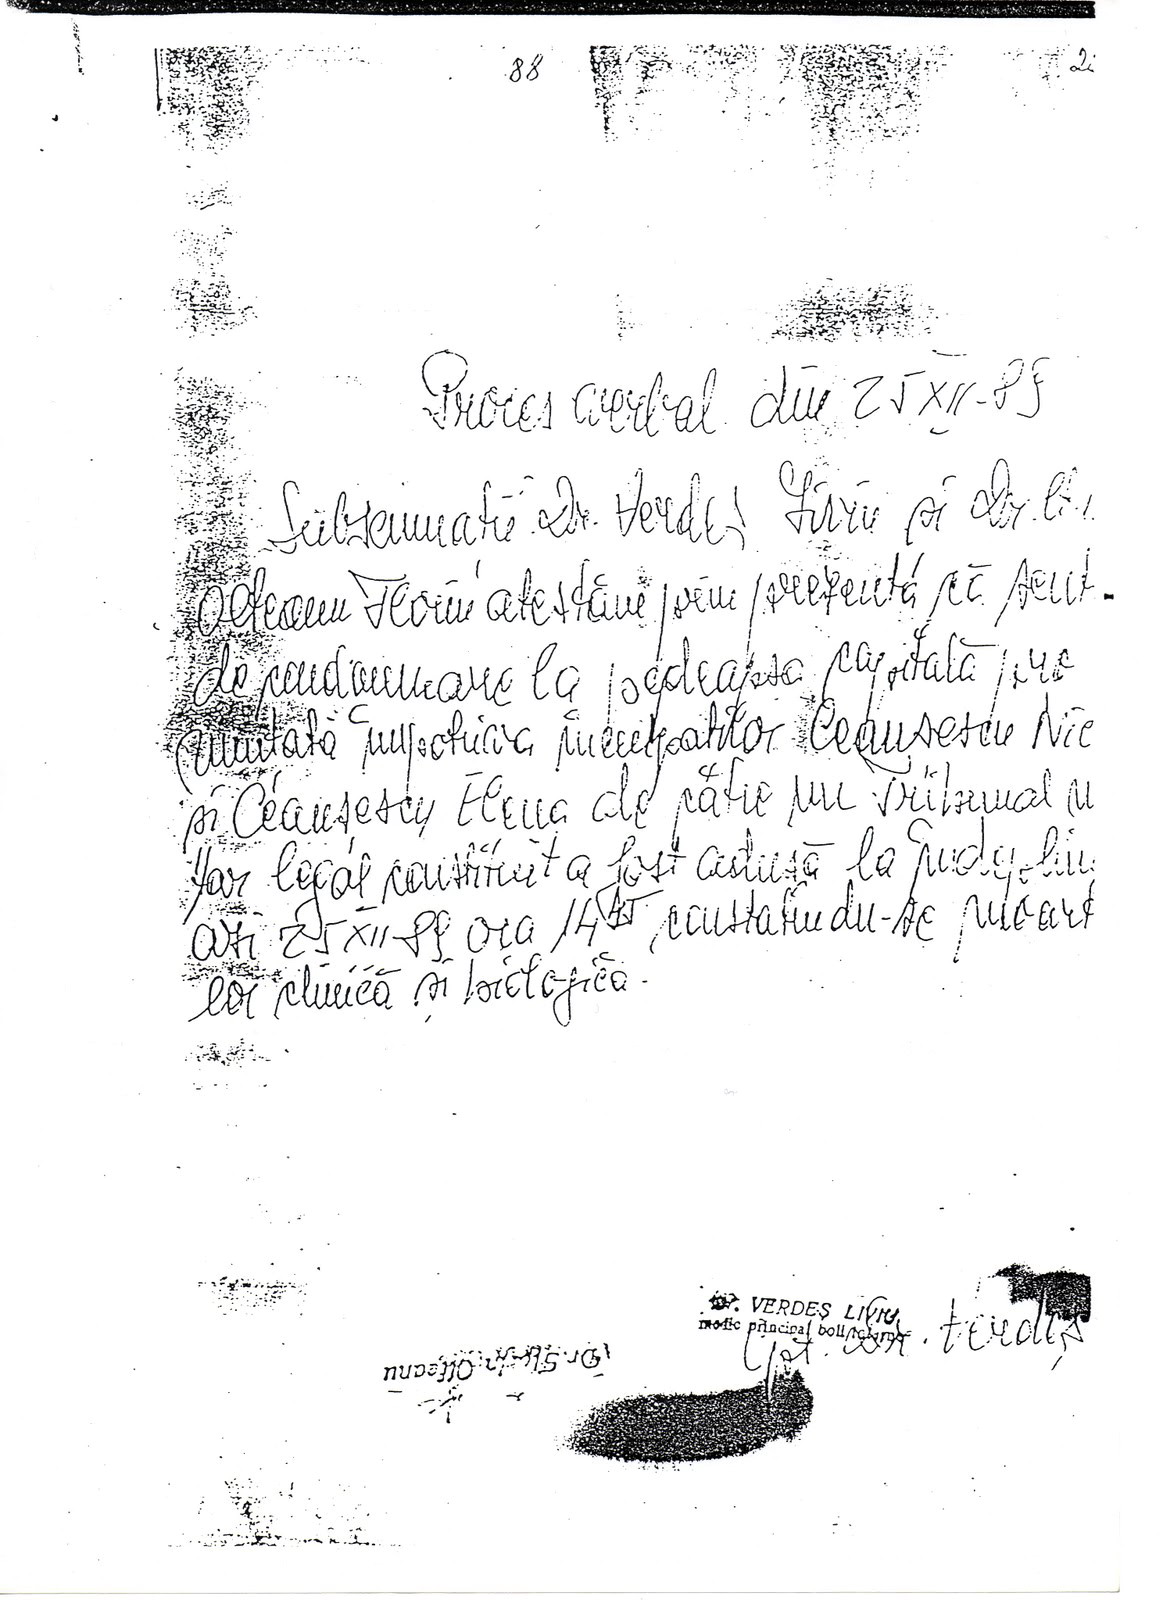 88
Proces verbal din 25 XII-89
Subsemnatii Dr. Verdeș Liviu și dr. lt.
Olteanu Florin atestăm prin prezenta că sent
de condamnare la pedeapsa capitală pro
nunțată împotriva inculpatilor Ceaușescu Nic
și Ceaușescu Elena de către un tribunal
tar legal constituit a fost adusă la
azi 25 XII-89 ora 14 45, constatîndu-se moart
lor clinică și biologică.
Dr. VERDEȘ LIVIU
medic principal boli interne
Cpt. dr. Verdeș
Olteanu